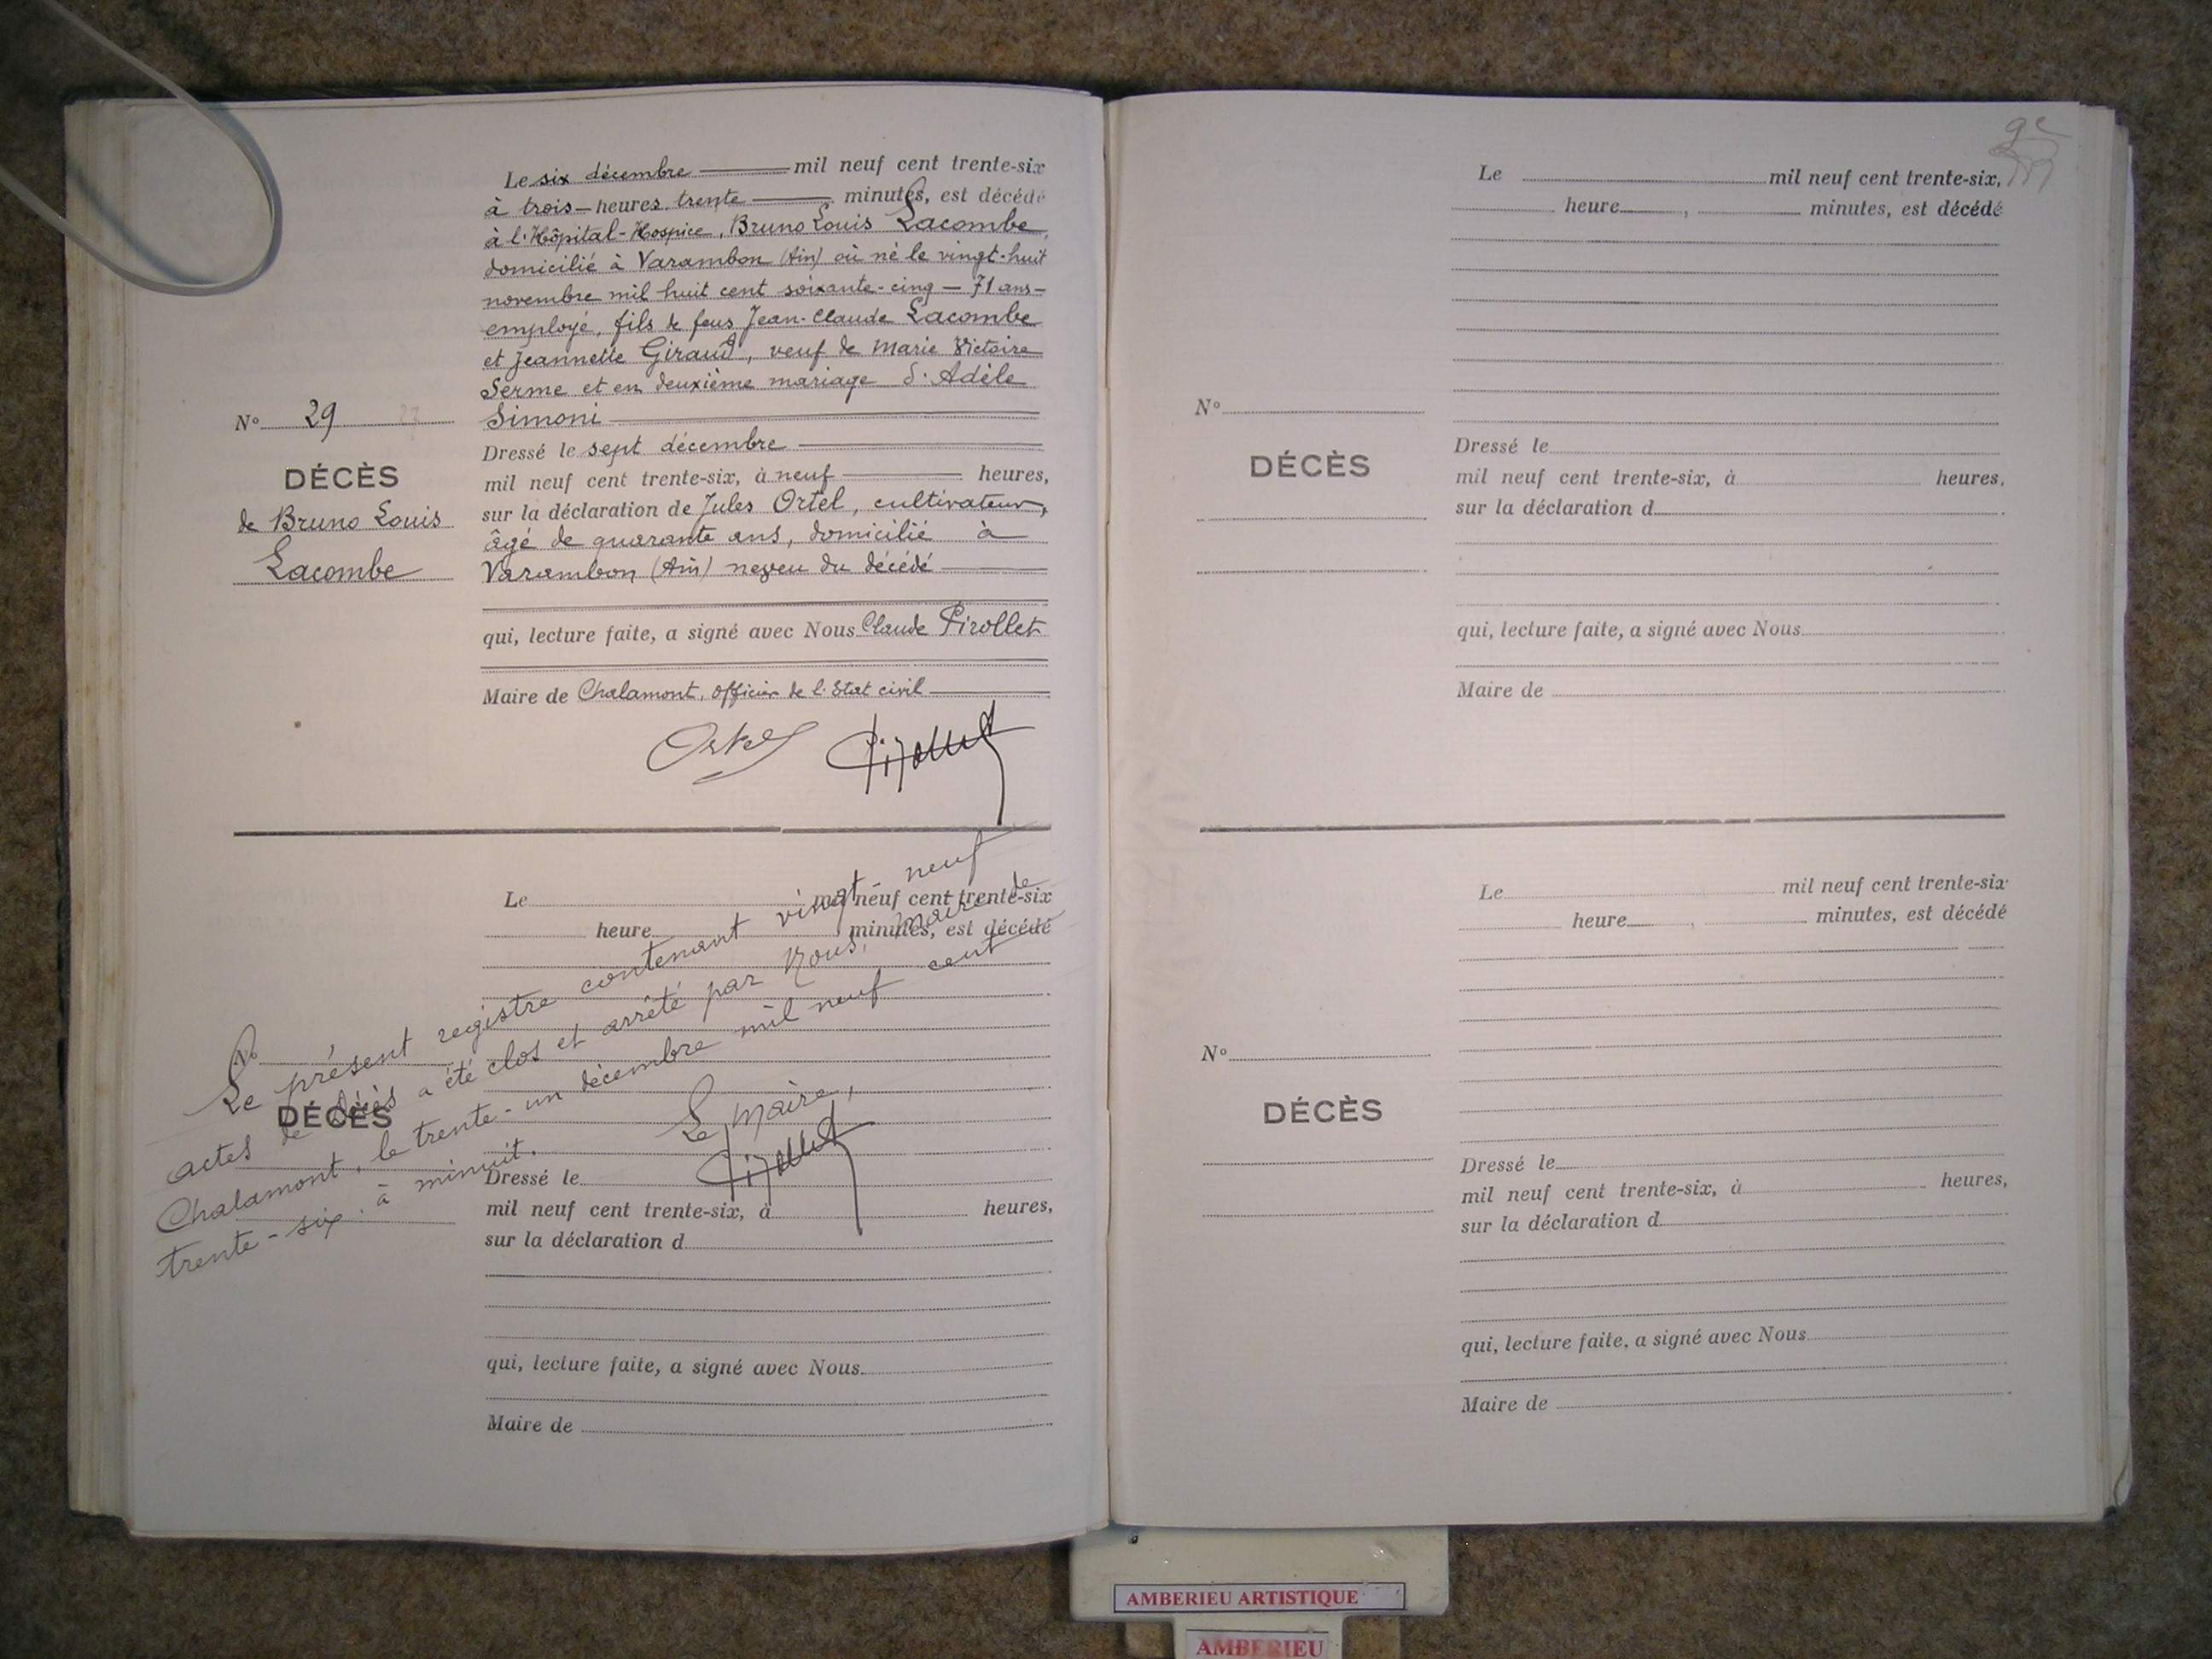 Le six décembre mil neuf cent trente-six
à trois heures trente minutes, est décédé
à l'Hôpital-Hospice, Bruno Louis Lacombe,
domicilié à Varambon (Ain) où né le vingt-huit
novembre mil huit cent soixante-cinq — 71 ans —
employé, fils de feus Jean-Claude Lacombe
et Jeannette Giraud, veuf de Marie Victoire
Serme et en deuxième mariage d'Adèle
Simoni
N° 29
DÉCÈS
de Bruno Louis
Lacombe
Dressé le sept décembre
mil neuf cent trente-six, à neuf heures,
sur la déclaration de Jules Ortel, cultivateur,
âgé de quarante ans, domicilié à
Varambon (Ain) neveu du décédé
qui, lecture faite, a signé avec Nous Claude Pirollet
Maire de Chalamont, officier de l'Etat civil
Ortel Pirollet
Le mil neuf cent trente-six
heure minutes, est décédé
N°
DÉCÈS
Le présent registre contenant vingt-neuf
actes de décès a été clos et arrêté par Nous, Maire de
Chalamont, le trente-un décembre mil neuf cent
trente-six, à minuit.
Le Maire,
Pirollet
Dressé le
mil neuf cent trente-six, à heures,
sur la déclaration d
qui, lecture faite, a signé avec Nous
Maire de
Le mil neuf cent trente-six,
heure , minutes, est décédé
N°
DÉCÈS
Dressé le
mil neuf cent trente-six, à heures,
sur la déclaration d
qui, lecture faite, a signé avec Nous
Maire de
Le mil neuf cent trente-six
heure , minutes, est décédé
N°
DÉCÈS
Dressé le
mil neuf cent trente-six, à heures,
sur la déclaration d
qui, lecture faite, a signé avec Nous
Maire de
AMBERIEU ARTISTIQUE
AMBERIEU